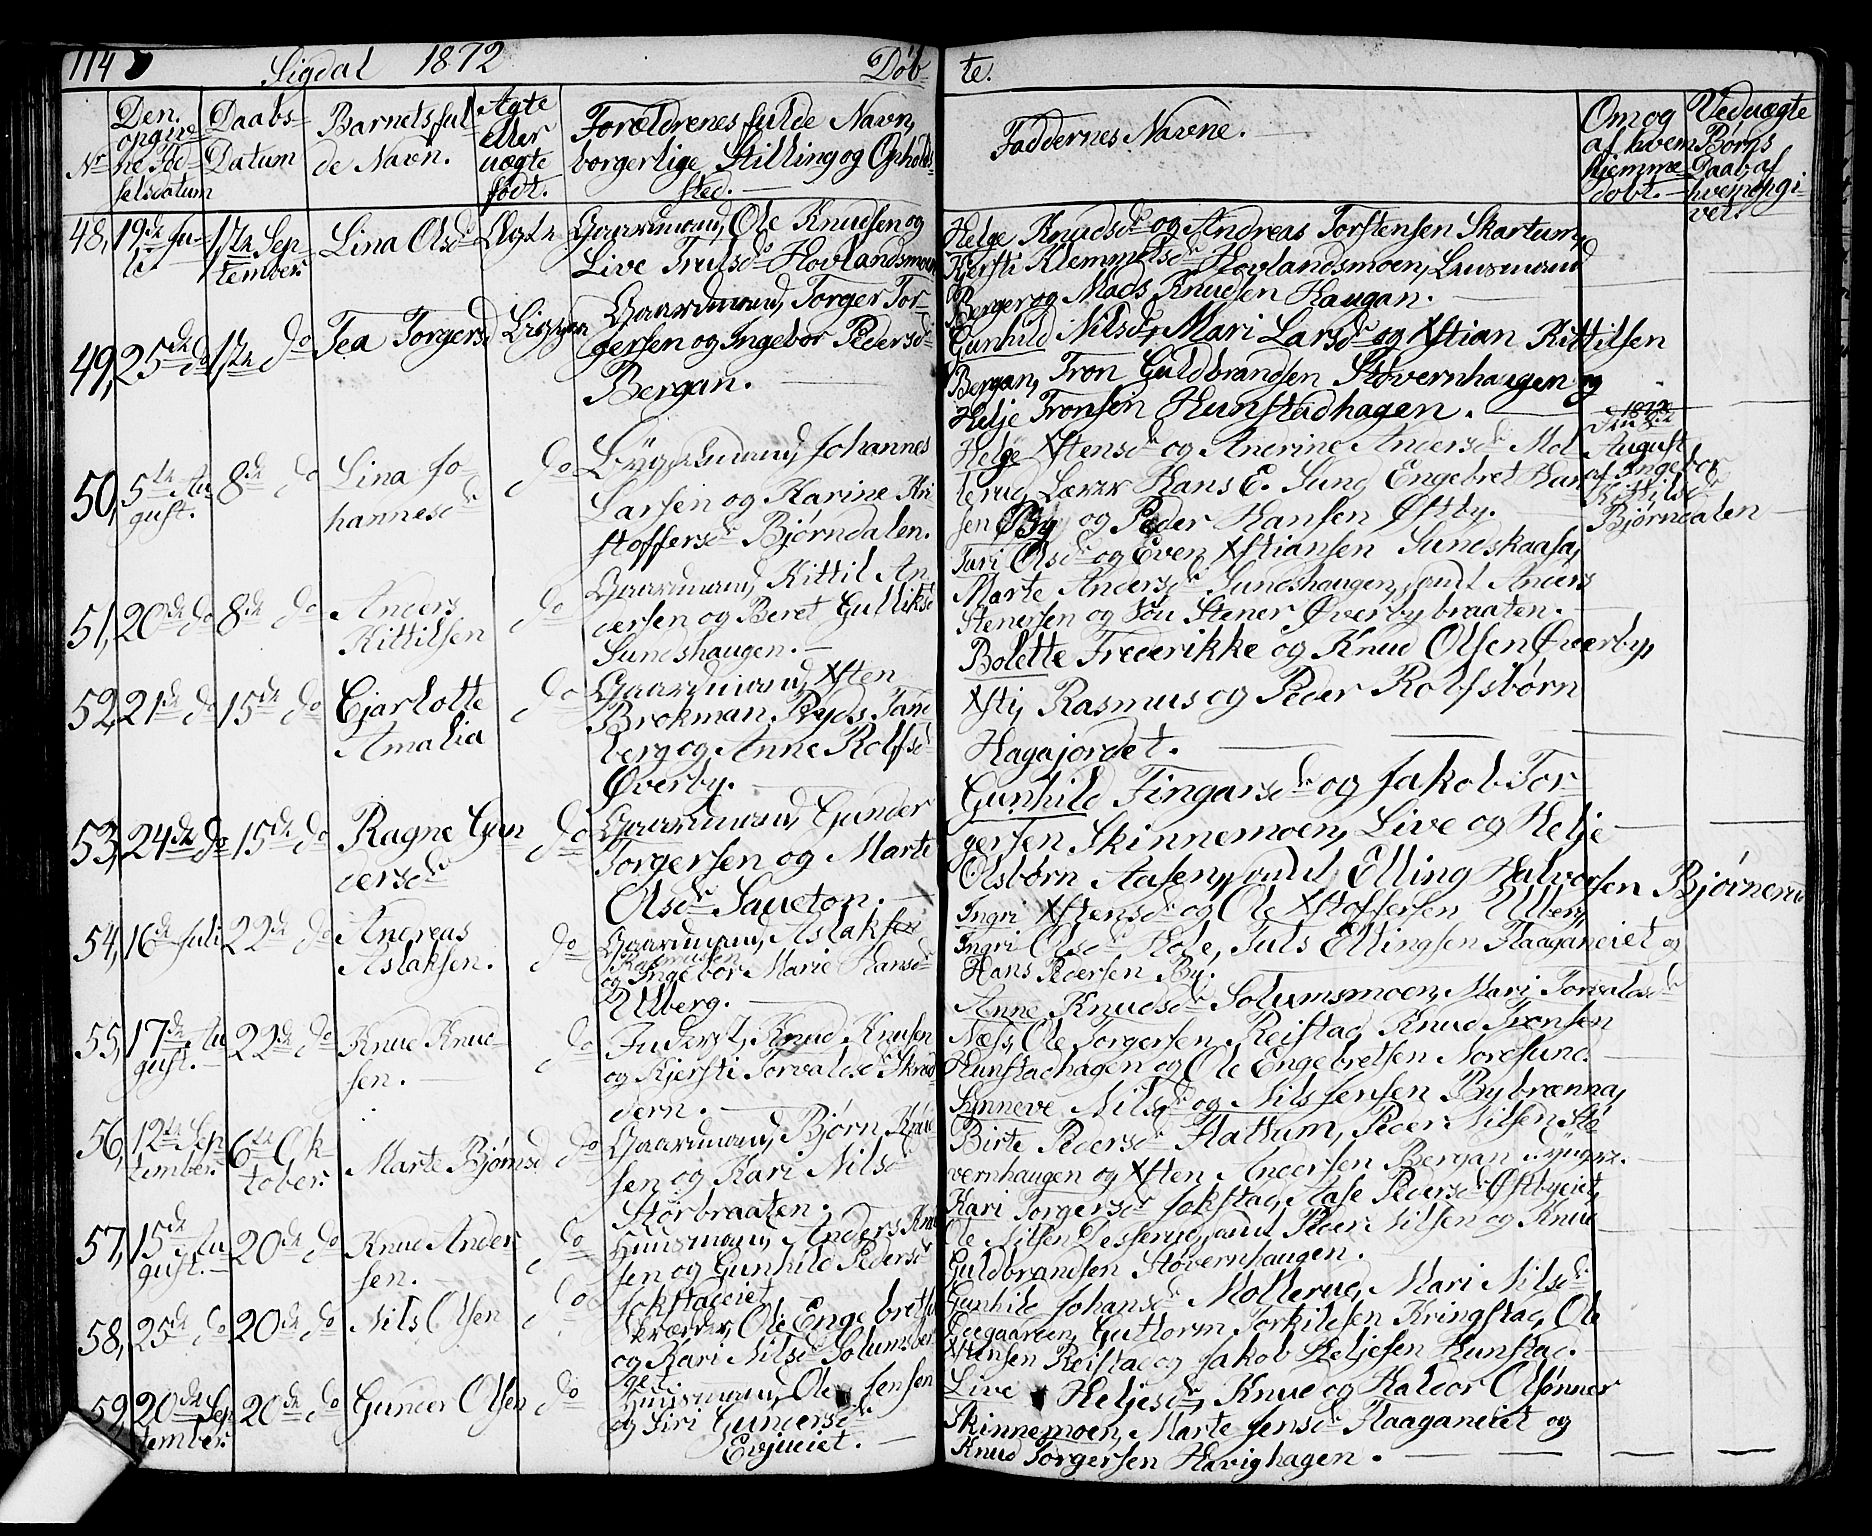 114
Sigdal 1872
Døb-
te.
Nr
Den opgivne Fødselsdatum
Daabs-
Datum
Barnets ful-
de Navn.
Ægte
eller
uægte
født.
Forældrenes fulde Navn,
borgerlige Stilling og Opholds-
sted.
Faddernes Navne.
Om og
af hvem
hjemme-
døbt.
Ved uægte
Børns
Daab af
hvem opgi-
vet.
48, 19de Ju-
li
17de Sep-
tember
Lina Olsd
Ægte
Gaardmand, Ole Knudsen og
Live Trulsdr Hovlandsmoen
Helge Knudsdr og Andreas Torstensen Skartum,
Kjersti Klemmetsdr Hovlandsmoen, Lensmand
Berger og Mads Knudsen Haugan.
49, 25de do
17de do
Tea Torgersd
Gaardmand, Torger Tor-
gersen og Ingebor Pedersdr
Bergan.
Gunhild Nilsdr, Mari Larsdr og Xstian Kittilsen
Bergan, Tron Guldbrandsen Støvernhaugen og
Helje Tronsen Hunstadhagen.
50, 5te Au-
gust.
8de do
Lina Jo-
hannesdr
do
Johannes
Larsen og Karine Kri-
stoffersdr Bjørndalen.
Helje Xstensdr og Anerine Andersdr Mol-
lerud, Lærer Hans E. Sund, Engebret Han-
sen By og Peder Hansen Østby.
1872
August
af Ingebor
Kittilsdr
Bjørndalen
51, 20de do
8de do
Anders
Kittilsen
do
Gaardmand, Kittil An-
dersen og Beret Gulliksd
Sundshaugen.
Turi Olsdr og Even Xstiansen Sundskaasa,
Marte Andersdr Sundshaugen, Anders
Stenersen og Stener Øverbybraaten.
52, 21de do
15de do
Cjarlotte
Amalia
do
Gaardmand, Xsten
Brokman Ryds Tand-
berg og Anne Rolfsd
Øverby.
Bolette Frederikke og Knud Olsen Øverby,
Xsti, Rasmus og Peder Rolfsbørn
Hagajordet.
53, 24de do
15de do
Ragne Gun-
dersdr
do
Gaardmand, Gunder
Torgersen og Marte
Olsdr Saueton.
Gunhild Fingarsdr og Jakob Tor-
gersen Skinnemoen, Live og Helje
Olsbørn Aasen, Elling Halvorsen Bjørnerud
54, 16de Juli
22de do
Andreas
Aslaksen.
do
Gaardmand, Aslak
Rasmusen
og Ingebor Marie Hansdr
Ulberg.
Ingri Xstensdr og Ole Xstoffersen Ulberg,
Ingri Olsdr Hole, Juls Ellingsen Flaaganeiet og
Hans Pedersen By.
55, 17de Au-
gust.
22de do
Knud Knud-
sen.
do
Inderst, Knud Knudsen
og Kjersti Torvaldsdr Skred-
dern.
Anne Knudsdr Solumsmoen, Mari Torvaldsdr
Næss, Ole Torgersen Reistad, Knud Tronsen
Hunstadhagen og Ole Engebretsen Nordsund.
56, 12te Sep-
tember
6te Ok-
tober.
Marte Bjørnsd
do
Gaardmand, Bjørn
sen og Kari Nilsdr
Størbraaten.
Synneve Nilsdr og Nils Jensen Bybrænna,
Birte Pedersdr Flattum, Peder Nilsen Stø-
vernhaugen og Xsten Andersen Bergan
57, 15de Au-
gust.
20de do
Knud Ander-
sen.
do
Husmand, Anders Knud-
sen og Gunhild Pedersdr
Jokstadeiet.
Kari Torgersdr Jokstad, Aase Pedersdr Østbyeiet,
Ole Nilsen Desserud, Peder Nilsen og Knud
Guldbrandsen Støvernhaugen.
58, 25de do
20de do
Nils Olsen
do
Skrædder, Ole Engebretsen
og Kari Nilsdr Solumsber-
get.
Gunhild Johansdr Mollerud, Mari Nilsdr
Guttorm Torkildsen Kringstad, Ole
Xstensen Reistad og Jakob Heljesen Hunstad.
59, 20de Sep-
tember.
20de do
Gunder Olsen
do
Husmand, Ole Jensen
og Siri Gundersdr
Evjueiet.
Live Heljesdr, Knud og Haldor Olsønner
Skinnemoen, Marte Jensdr Flaaganeiet og
Knud Torgersen Havighagen.